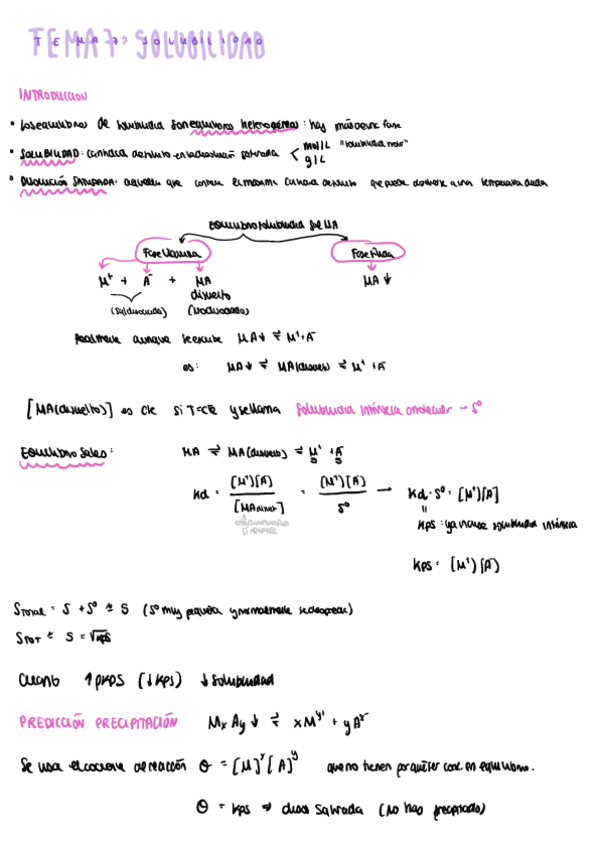 TEMA 7: SOLUBILIDAD
INTRODUCCION
• Los equilibrios de solubilidad son equilibrios heterogéneos: hay más de una fase
• SOLUBILIDAD: cantidad de soluto en la disolución saturada < mol/L "solubilidad molar"
g/L
• DISOLUCIÓN SATURADA: aquella que contiene el máxima cantidad de soluto que puede disolverse a una temperatura dada
Equilibrio solubilidad sal MA
Fase líquida
M⁺ + A⁻ + MA
disuelto
(sal disociada) (no disociado)
MA ↓
Realmente aunque se escribe MA↓ ⇌ M⁺ + A⁻
es: MA↓ ⇌ MA(disuelto) ⇌ M⁺ + A⁻
[MA(disuelto)] es cte si T=cte y se llama solubilidad intrínseca o molecular → S⁰
Equilibrio sales: MA ⇌ MA(disuelto) ⇌ M⁺ + A⁻
S S
Kd = [M⁺][A⁻] / [MA disuelto] = [M⁺][A⁻] / S⁰ → Kd · S⁰ = [M⁺][A⁻]
Kps: ya incluye solubilidad intrínseca
Kps = [M⁺][A⁻]
STotal = S + S⁰ ≅ S (S⁰ muy pequeña y normalmente se desprecia)
STOT ≅ S = √Kps
Cuanto ↑pKps (↓Kps) ↓solubilidad
PREDICCIÓN PRECIPITACIÓN MxAy↓ ⇌ xMʸ⁺ + yAˣ⁻
Se usa el cociente de reacción Q = [M]ˣ[A]ʸ que no tienen por qué ser conc. en equilibrio.
Q = Kps ⇒ disol saturada (No hay precipitado)